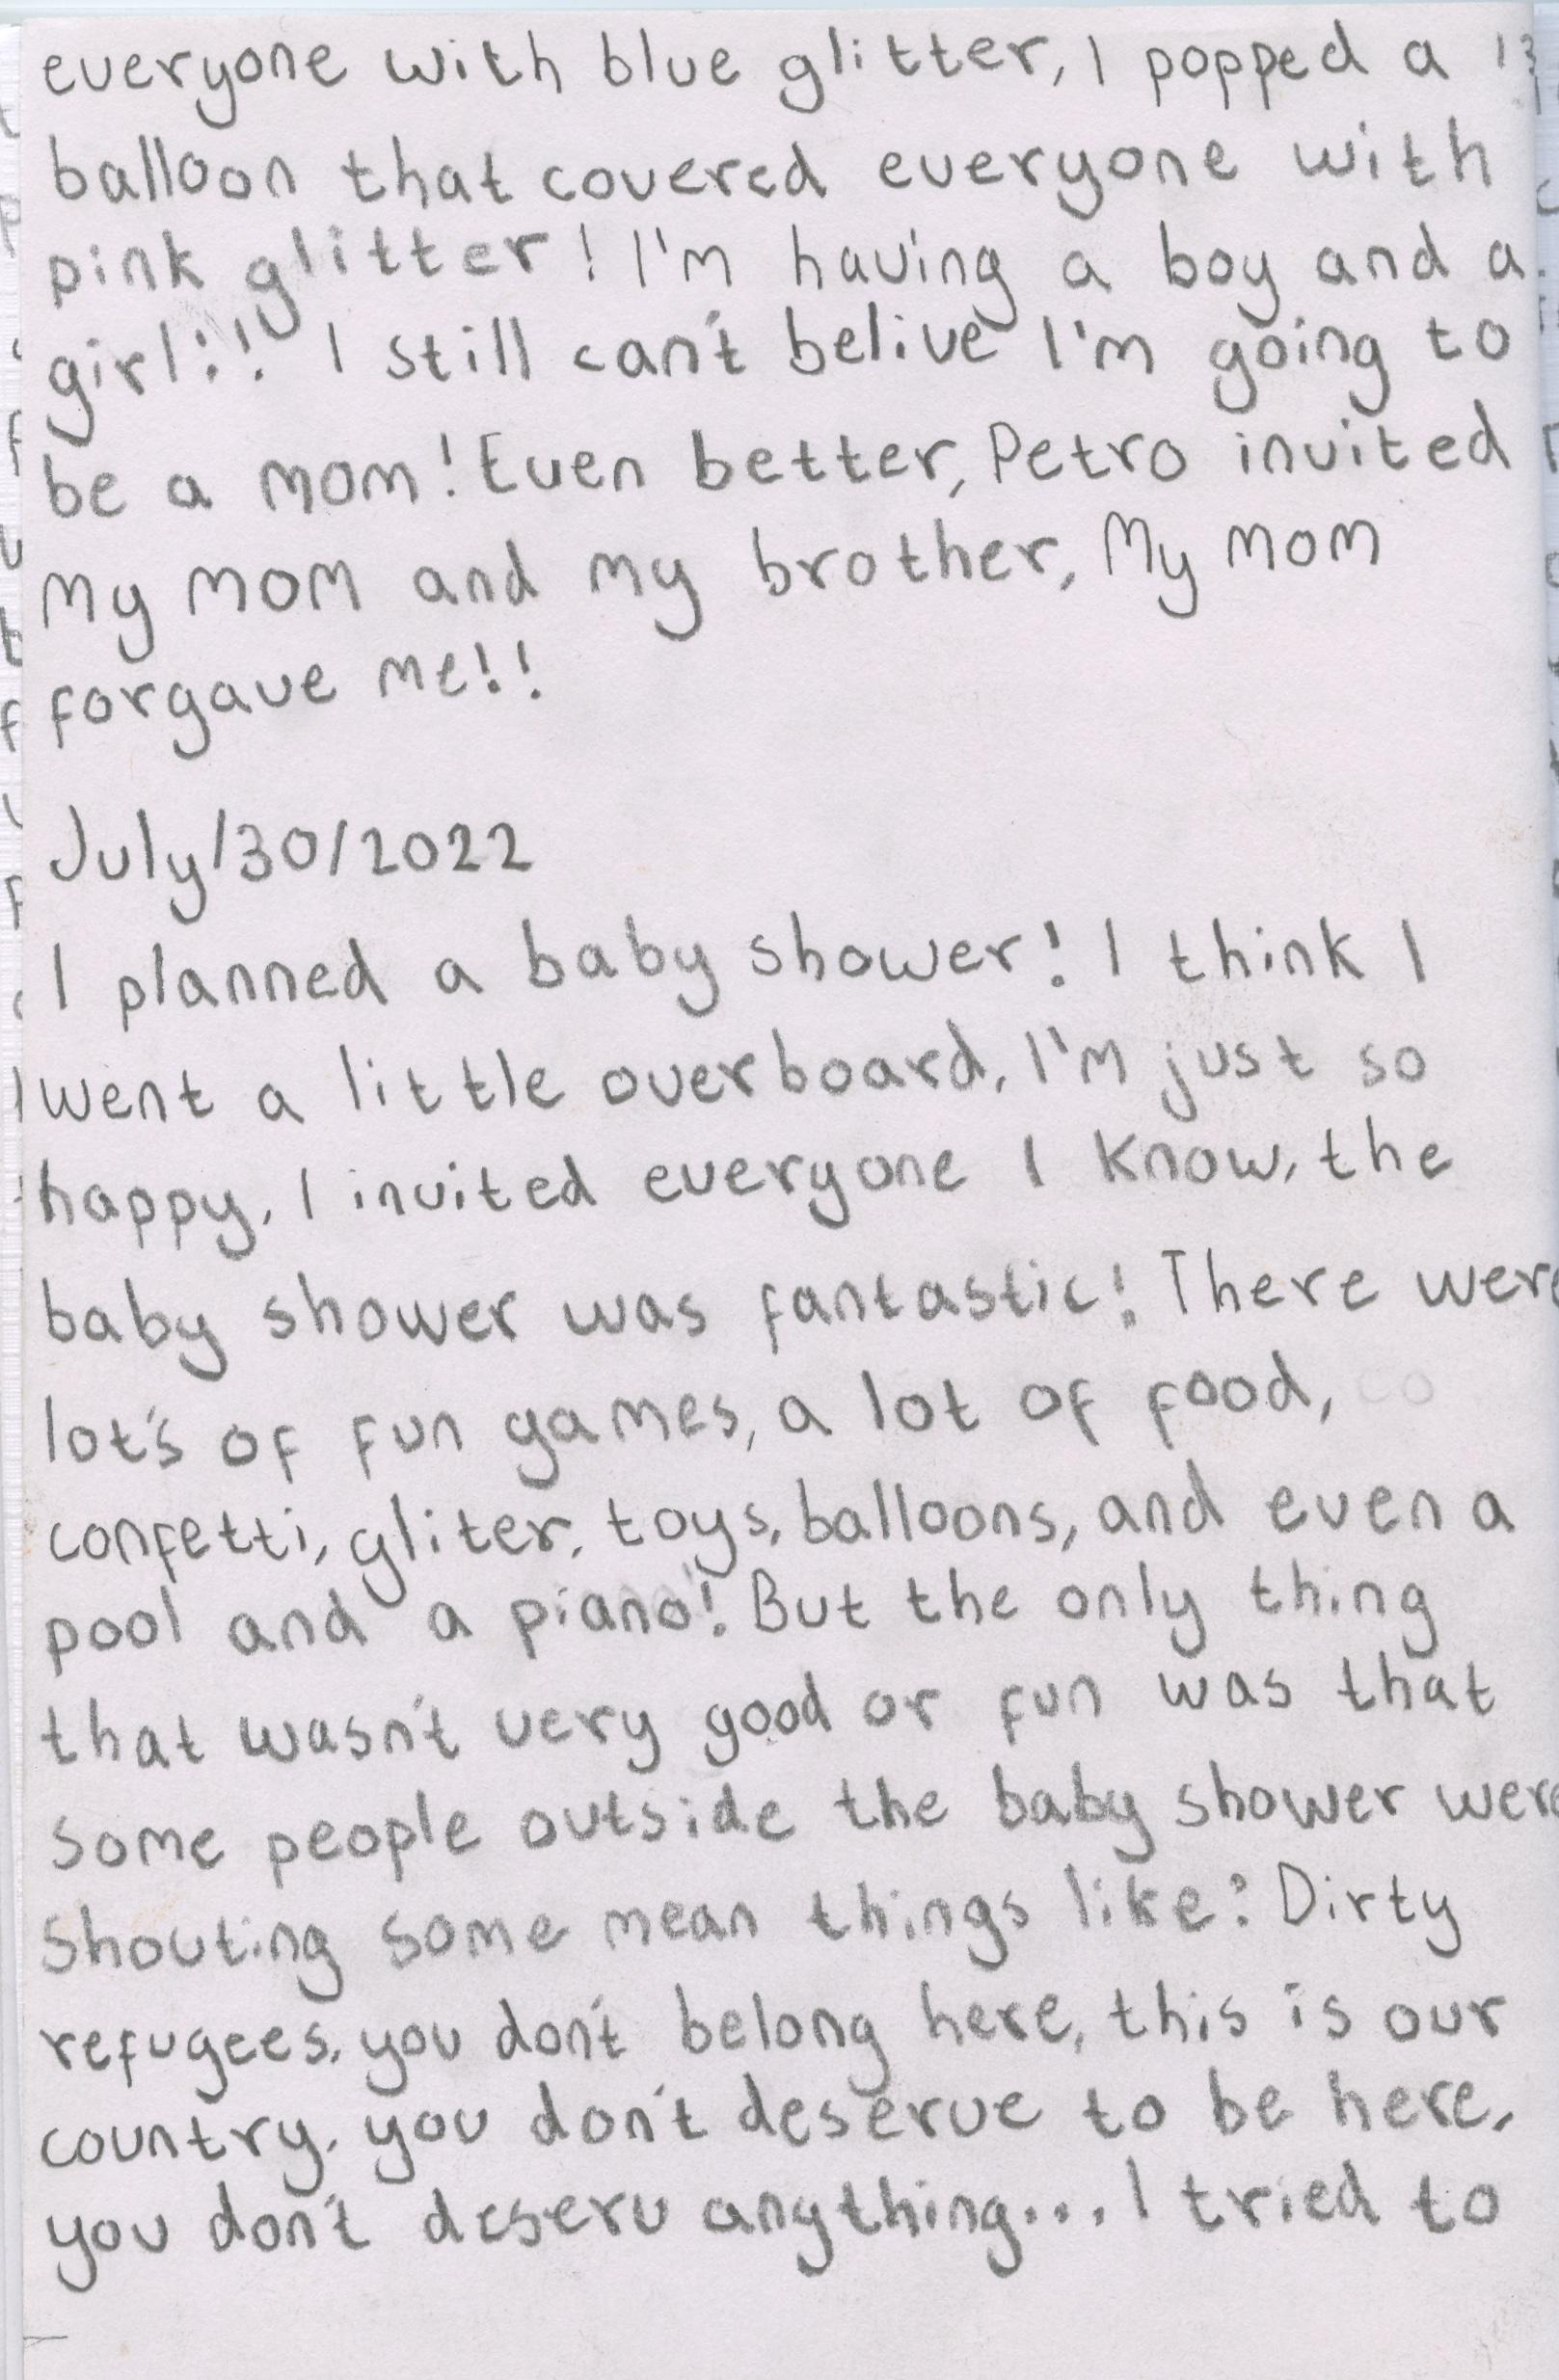 everyone with blue glitter, I popped a
balloon that covered everyone with
pink glitter! I'm having a boy and a
girl!! I still can't belive I'm going to
be a mom! Even better, Petro invited
my mom and my brother, My mom
forgave me!!
July/30/2022
I planned a baby shower! I think I
went a little overboard, I'm just so
happy, I invited everyone I know, the
baby shower was fantastic! There were
lot's of fun games, a lot of food,
confetti, gliter, toys, balloons, and even a
pool and a piano! But the only thing
that wasn't very good or fun was that
some people outside the baby shower were
shouting some mean things like: Dirty
refugees, you don't belong here, this is our
country, you don't deserve to be here,
you don't deserv anything... I tried to